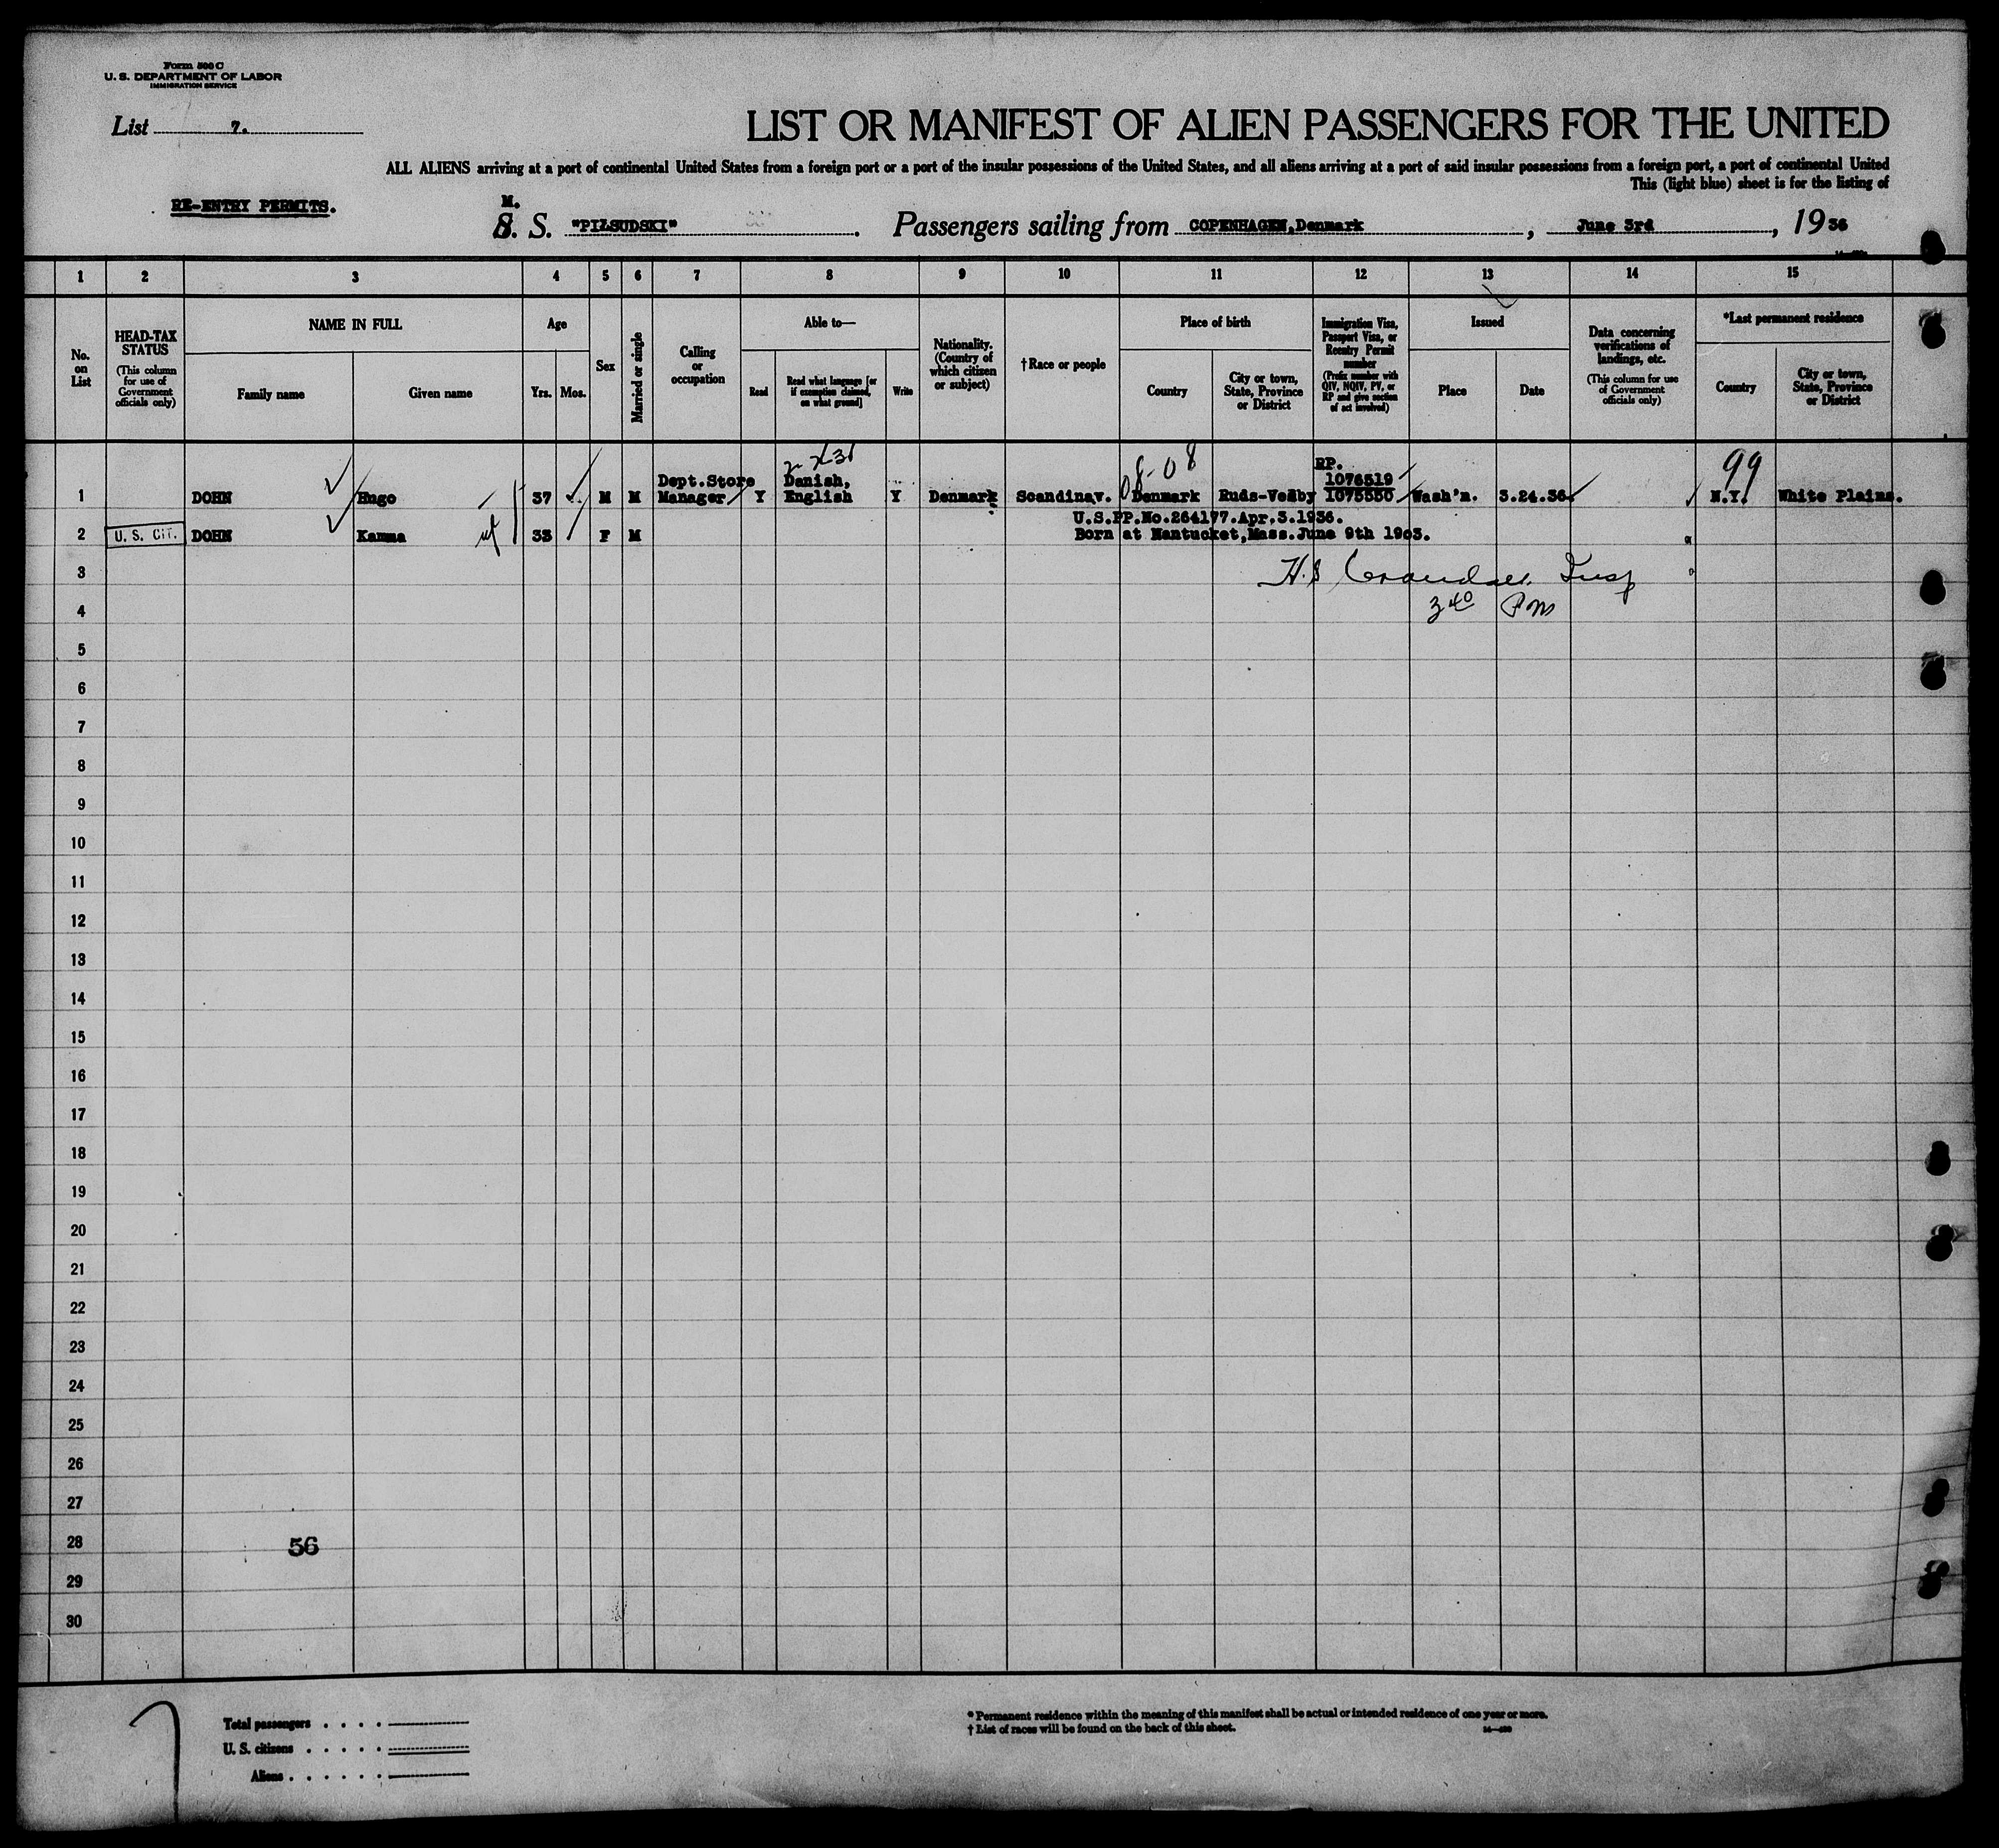 Form 500 C
U. S. DEPARTMENT OF LABOR
IMMIGRATION SERVICE
List 7.
LIST OR MANIFEST OF ALIEN PASSENGERS FOR THE UNITED
ALL ALIENS arriving at a port of continental United States from a foreign port or a port of the insular possessions of the United States, and all aliens arriving at a port of said insular possessions from a foreign port, a port of continental United
This (light blue) sheet is for the listing of
RE-ENTRY PERMITS.
M.
S. S. "PIŁSUDSKI". Passengers sailing from COPENHAGEN, Denmark, June 3rd, 1936
1 2 3 4 5 6 7 8 9 10 11 12 13 14 15
No. on List
HEAD-TAX STATUS
(This column for use of Government officials only)
NAME IN FULL
Family name
Given name
Age
Yrs.
Mos.
Sex
Married or single
Calling or occupation
Able to—
Read
Read what language [or if exemption claimed, on what ground]
Write
Nationality. (Country of which citizen or subject)
†Race or people
Place of birth
Country
City or town, State, Province or District
Immigration Visa, Passport Visa, or Reentry Permit number
(Prefix number with QIV, NQIV, PV, or RP and give section of act involved)
Issued
Place
Date
Data concerning verifications of landings, etc.
(This column for use of Government officials only)
*Last permanent residence
Country
City or town, State, Province or District
08-08
99
RP.
Dept.Store Danish, 1076519
1 DOHN Hugo 37 M M Manager Y English Y Denmark Scandinav. Denmark Ruds-Vedby 1075550 Wash'n. 3.24.36. N.Y. White Plains.
U.S.PP.No.264177.Apr.3.1936.
2 U. S. CIT. DOHN Kamma 33 F M Born at Nantucket,Mass.June 9th 1903.
3 H.S. Insp
4 3 40 PM
5
6
7
8
9
10
11
12
13
14
15
16
17
18
19
20
21
22
23
24
25
26
27
28 56
29
30
Total passengers . . . .
U. S. citizens . . . . .
Aliens . . . . . .
* Permanent residence within the meaning of this manifest shall be actual or intended residence of one year or more.
† List of races will be found on the back of this sheet.